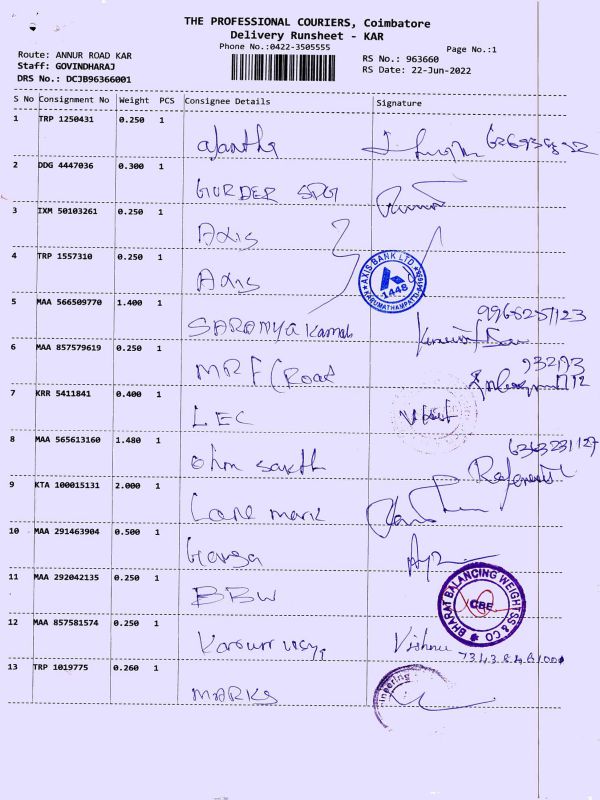 THE PROFESSIONAL COURIERS, Coimbatore
Delivery Runsheet - KAR
Phone No.:0422-3505555
Page No.:1
Route: ANNUR ROAD KAR
Staff: GOVINDHARAJ
DRS No.: DCJB96366001
RS No.: 963660
RS Date: 22-Jun-2022
S No Consignment No Weight PCS Consignee Details Signature
1 TRP 1250431 0.250 1
2 DDG 4447036 0.300 1
GURDER SPG
3 IXM 50103261 0.250 1
Axis
4 TRP 1557310 0.250 1
Axis
AXIS BANK LTD
1448
5 MAA 566509770 1.400 1
SARANYA Kamal
6 MAA 857579619 0.250 1
MRF (Road
7 KRR 5411841 0.400 1
LEC
8 MAA 565613160 1.480 1
Ohm sakthi
9 KTA 100015131 2.000 1
Care mark
10 MAA 291463904 0.500 1
11 MAA 292042135 0.250 1
BBW
BHARAT BALANCING WEIGHTSS & CO
CBE
12 MAA 857581574 0.250 1
Vishnu
13 TRP 1019775 0.260 1
MARKS